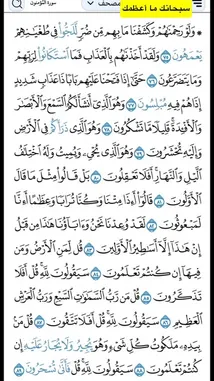 سبحانك ما أعظمك
سورة المؤمنون
مصحف
۞ وَلَوْ رَحِمْنَٰهُمْ وَكَشَفْنَا مَا بِهِم مِّن ضُرٍّ لَّلَجُّوا۟ فِى طُغْيَٰنِهِمْ
يَعْمَهُونَ ٧٥ وَلَقَدْ أَخَذْنَٰهُم بِٱلْعَذَابِ فَمَا ٱسْتَكَانُوا۟ لِرَبِّهِمْ
وَمَا يَتَضَرَّعُونَ ٧٦ حَتَّىٰٓ إِذَا فَتَحْنَا عَلَيْهِم بَابًا ذَا عَذَابٍ شَدِيدٍ
إِذَا هُمْ فِيهِ مُبْلِسُونَ ٧٧ وَهُوَ ٱلَّذِىٓ أَنشَأَ لَكُمُ ٱلسَّمْعَ وَٱلْأَبْصَٰرَ
وَٱلْأَفْـِٔدَةَ قَلِيلًا مَّا تَشْكُرُونَ ٧٨ وَهُوَ ٱلَّذِى ذَرَأَكُمْ فِى ٱلْأَرْضِ
وَإِلَيْهِ تُحْشَرُونَ ٧٩ وَهُوَ ٱلَّذِى يُحْىِۦ وَيُمِيتُ وَلَهُ ٱخْتِلَٰفُ
ٱلَّيْلِ وَٱلنَّهَارِ أَفَلَا تَعْقِلُونَ ٨٠ بَلْ قَالُوا۟ مِثْلَ مَا قَالَ
ٱلْأَوَّلُونَ ٨١ قَالُوٓا۟ أَءِذَا مِتْنَا وَكُنَّا تُرَابًا وَعِظَٰمًا أَءِنَّا
لَمَبْعُوثُونَ ٨٢ لَقَدْ وُعِدْنَا نَحْنُ وَءَابَآؤُنَا هَٰذَا مِن قَبْلُ
إِنْ هَٰذَآ إِلَّآ أَسَٰطِيرُ ٱلْأَوَّلِينَ ٨٣ قُل لِّمَنِ ٱلْأَرْضُ وَمَن
فِيهَآ إِن كُنتُمْ تَعْلَمُونَ ٨٤ سَيَقُولُونَ لِلَّهِ قُلْ أَفَلَا
تَذَكَّرُونَ ٨٥ قُلْ مَن رَّبُّ ٱلسَّمَٰوَٰتِ ٱلسَّبْعِ وَرَبُّ ٱلْعَرْشِ
ٱلْعَظِيمِ ٨٦ سَيَقُولُونَ لِلَّهِ قُلْ أَفَلَا تَتَّقُونَ ٨٧ قُلْ مَنۢ
بِيَدِهِۦ مَلَكُوتُ كُلِّ شَىْءٍ وَهُوَ يُجِيرُ وَلَا يُجَارُ عَلَيْهِ إِن
كُنتُمْ تَعْلَمُونَ ٨٨ سَيَقُولُونَ لِلَّهِ قُلْ فَأَنَّىٰ تُسْحَرُونَ ٨٩